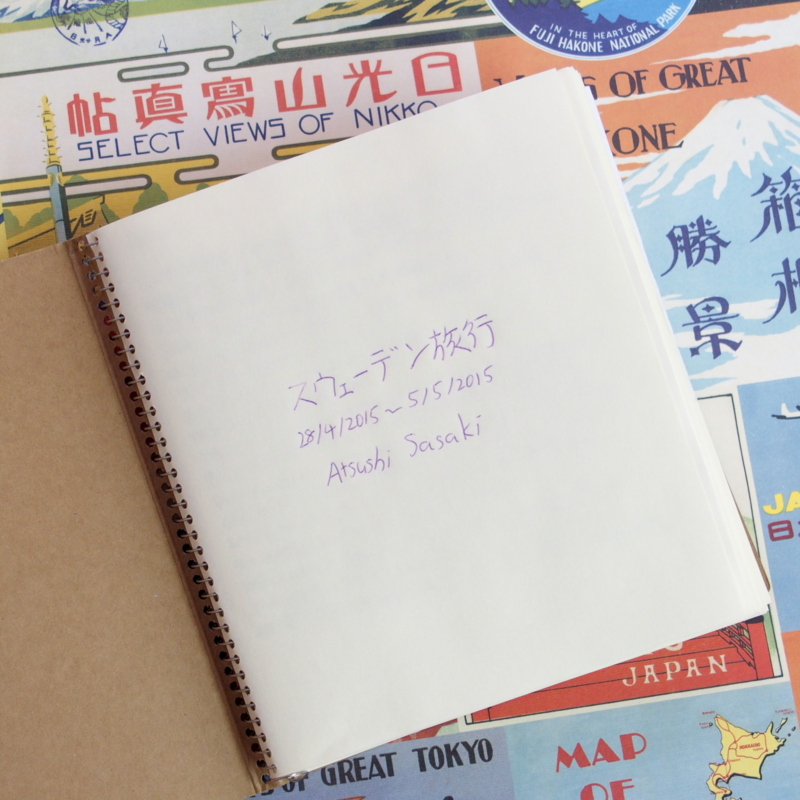 IN THE HEART OF
FUJI HAKONE NATIONAL PARK
帖真寫山光日
SELECT VIEWS OF NIKKO
OF GREAT
箱根
勝景
スウェーデン旅行
28/4/2015〜5/5/2015
Atsushi Sasaki
JAPAN
OF GREAT TOKYO
MAP
OF